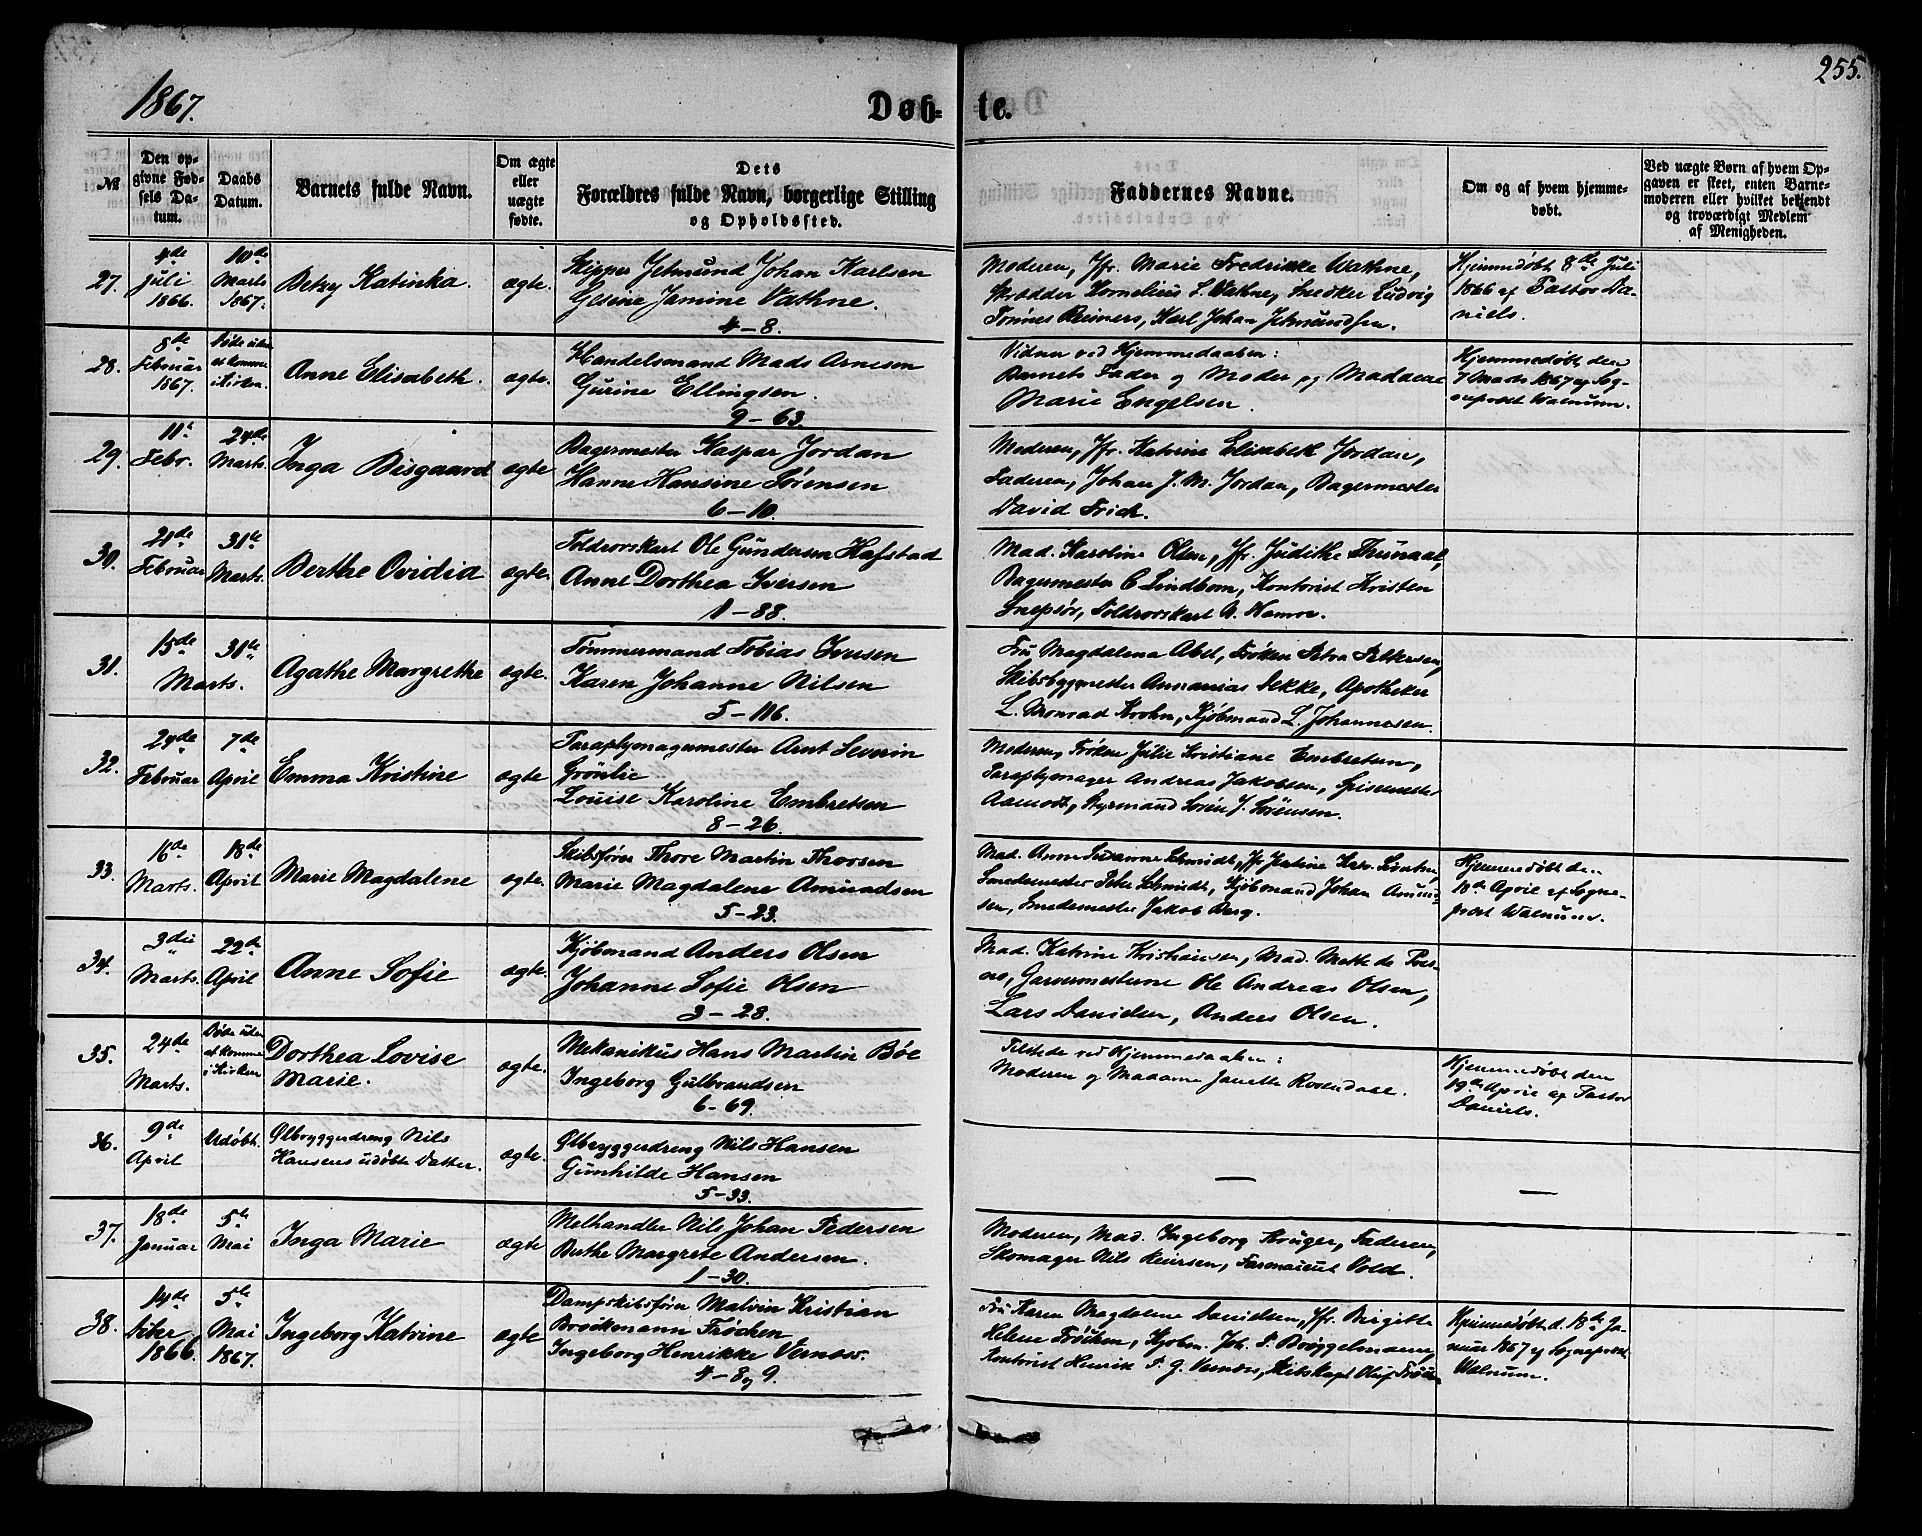 255.
1867.
Døb- te.
№
Den opgivne Fødsels Datum.
Daabs Datum.
Barnets fulde Navn.
Om ægte eller uægte fødte.
Dets Forældres fulde Navn, borgerlige Stilling og Opholdssted.
Faddernes Navne.
Om og af hvem hjemmedøbt.
Ved uægte Børn af hvem Opgaven er skeet, enten Barnemoderen eller hvilket bekjendt og troværdigt Medlem af Menigheden.
27.
4de Juli 1866.
10de Marts 1867.
Betzy Katinka.
ægte.
Skipper Jetmund Johan Karlsen
Gesine Jamine Vathne.
4-8.
Moderen, Jfr. Marie Fredrikke Wathne,
Skrædder Kornelius S. Wathne, Snedker Ludvig
Tønnes Reimers, Karl Johan Jetmundsen.
Hjemmedøbt 8de Juli
1866 af Pastor Da-
niels.
28.
8de Februar 1867.
Døde uden
at komme
i Kirken.
Anne Elisabeth.
ægte.
Handelsmand Mads Arnesen
Gurine Ellingsen.
9-63.
Vidner ved Hjemmedaaben:
Barnets Fader og Moder og Madame
Marie Engelsen.
Hjemmedøbt den
7 Marts 1867 af Sog-
neprest Walnum.
29.
11te Febr.
24de Marts.
Inga Bisgaard
ægte
Bagermester Kaspar Jordan
Hanne Hansine Sørensen
6-10.
Moderen, Jfr. Katrine Elisabeth Jordan,
Faderen, Johan J. M. Jordan, Bagermester
David Frich.
30.
21de Februar
31te Marts.
Berthe Ovidia
ægte.
Toldrorskart Ole Gundersen Hafstad
Anne Dorthea Iversen
1-88.
Mad. Karoline Olsen, Jfr. Judithe Thunaal,
Bagermester C Lindbom, Kontorist Kristen
Snepsør, Toldrorskart N. Hamre.
31.
15de
31te
Marts.
Agathe Margrethe
ægte.
Tømmermand Tobias Iversen
Karen Johanne Nilsen
5-116.
Fru Magdalena Abel, Frøken Petra Pettersen,
Skibsbygmester Annanias Dekke, Apotheker
L. Monrad Krohn, Kjøbmand L. Johannesen.
32.
24de Februar
7de April
Emma Kristine
ægte
Paraplymagermester Arnt Severin
Grönlie
Louise Karoline Embretsen
8-26.
Moderen, Frøken Julie Kristiane Embretsen,
Paraplymager Andreas Jakobsen, Spisemester
Aamodt, Styrmand Sören J. Sörensen.
33.
16de Marts.
18de April
Marie Magdalene
ægte.
Skibsfører Thore Martin Thorsen
Marie Magdalene Amundsen
5-23.
Mad. Anne Susanne Schmidt, Jfr
Smedemester Peter Schmidt, Kjøbmand Johan Amund-
sen, Smedemester Jakob Berg.
Hjemmedøbt den
18de April af Sogne-
prest Walnum.
34.
3die Marts.
22de April
Anne Sofie
ægte.
Kjøbmand Anders Olsen
Johanne Sofie Olsen
3-28.
Mad. Katrine Kristiansen, Mad. Mette de
Garvermesterne Ole Andreas Olsen,
Lars Danielsen, Anders Olsen.
35.
24de Marts.
Døde uden
at komme
i Kirken
Dorthea Lovise
Marie.
ægte.
Mekanikus Hans Martin Böe
Ingeborg Gulbrandsen
6-69.
Tilstede ved Hjemmedaaben:
Moderen og Madame Janette Rosendahl.
Hjemmedøbt den
19de April af Pastor
Daniels.
36.
9de April
Udøbt.
Ølbryggerdreng Nils
Hansens udøbte Datter.
ægte.
Ølbryggerdreng Nils Hansen
Gunhilde Hansen
5-33.
—
—
37.
18de Januar
5te Mai
Inga Marie
ægte
Melhandler Nils Johan Pedersen
Berthe Margrete Andersen.
1-30.
Moderen, Mad. Ingeborg Kruger, Faderen,
Skomager Nils Reiersen, Farmaceut Vold.
38.
14de Oktbr 1866.
5te Mai 1867.
Ingeborg Katrine
ægte
Dampskibsfører Malvin Kristian
Brockmann Fröchen
Ingeborg Henrikke Vernøs.
4-8 og 9.
Fru Karen Magdalene Danielsen, Jfr. Birgitte
Helene Fröchen, Kjøbm. Joh. F. Brøggelmann,
Kontorist Henrik F. G. Vernøs, Skibskapt Oluf Fröchen
Hjemmedøbt d. 18de Ja-
nuar 1867 af Sogneprest
Walnum.